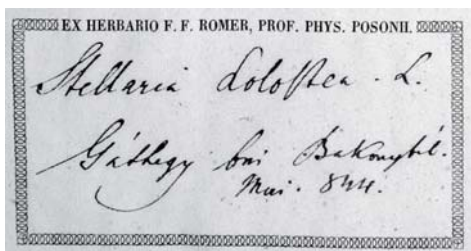 EX HERBARIO F. F. ROMER, PROF. PHYS. POSONII.
Stellaria Holostea. L.
Gáthegy bei Bakonybél.
Mai. 844.